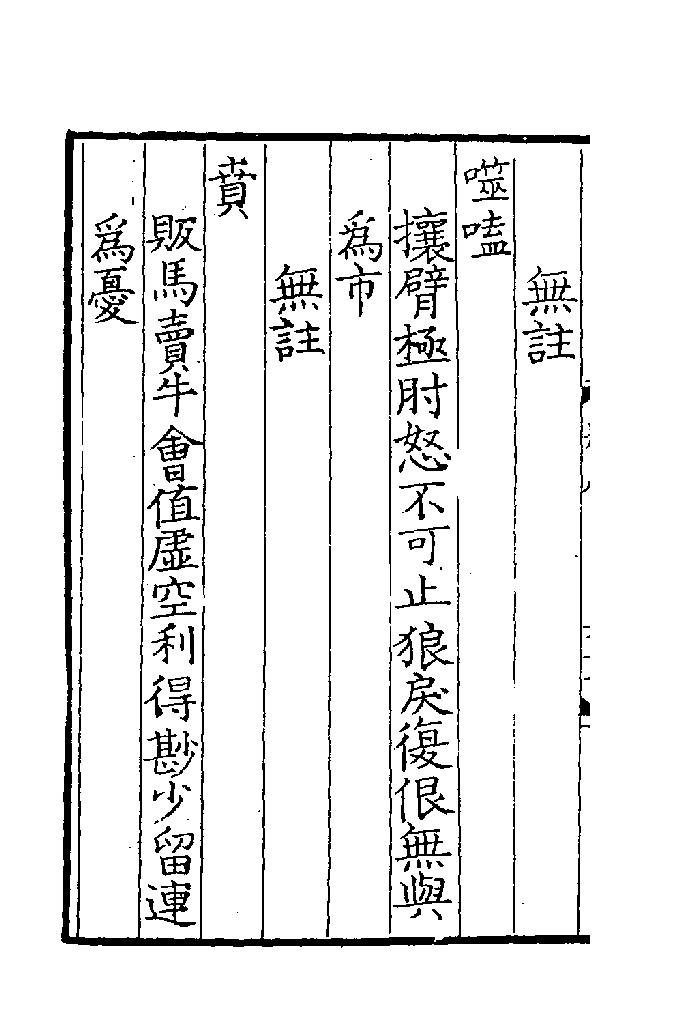 無註
噬嗑
攘臂極肘怒不可止狼戾復佷無與
爲市
無註
賁
販馬賣牛會值虛空利得尠少留連
爲憂